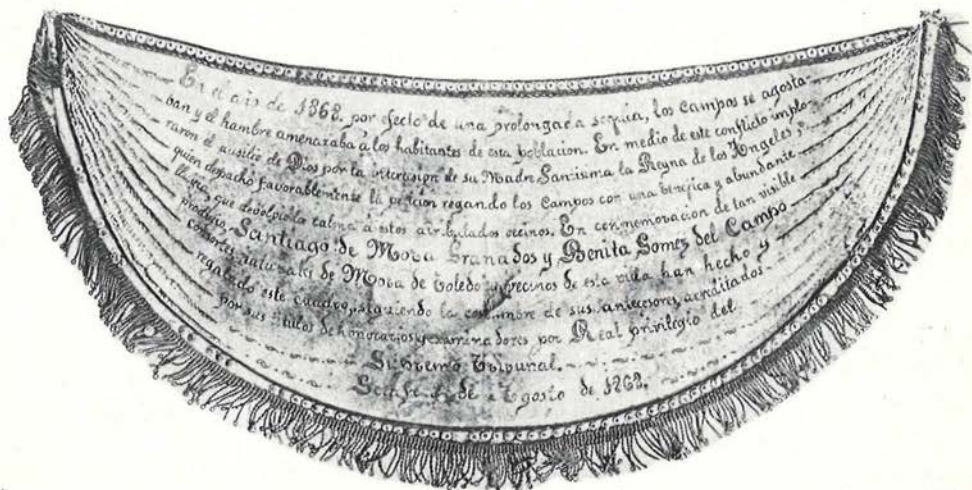 En el año de 1868. por efecto de una prolongada sequia, los campos se agosta-
ban y el hambre amenazaba á los habitantes de esta poblacion. En medio de este conflicto implo-
raron el ausilio de Dios por la intercesion de su Madre Santisima la Reyna de los Angeles
quien despachó favorablemente la peticion regando los campos con una benefica y abundante
lluvia, que devolvio la calma á estos atribulados vecinos. En conmemoracion de tan visible
prodigio, Santiago de Mora Granados y Benita Gomez del Campo
consortes naturales de Mora de Toledo y vecinos de esta villa han hecho y
regalado este cuadro, siguiendo la costumbre de sus antecesores, acreditados
por sus titulos de honorarios y examinadores por Real privilegio del
Supremo Tribunal.
de Agosto de 1868.